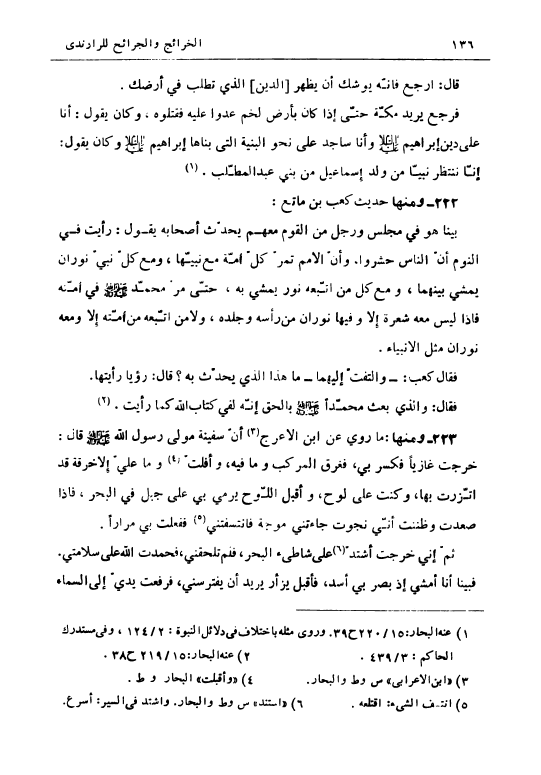 ١٣٦ الخرائج والجرائح للراوندى
قال: ارجع فانّه يوشك أن يظهر [الدين] الذي تطلب في أرضك .
فرجع يريد مكّة حتّى إذا كان بأرض لخم عدوا عليه فقتلوه ، وكان يقول : أنا
على دين إبراهيم عليه السلام وأنا ساجد على نحو البنية التى بناها إبراهيم عليه السلام وكان يقول:
إنّا ننتظر نبيّا من ولد إسماعيل من بني عبدالمطّلب . (١)
٢٢٢ـ ومنها حديث كعب بن ماتع :
بينا هو في مجلس ورجل من القوم معهم يحدّث أصحابه يقول : رأيت في
النوم أنّ الناس حشروا، وأنّ الأمم تمرّ كلّ أمّة مع نبيّها ، ومع كلّ نبيّ نوران
يمشي بينهما ، و مع كل من اتّبعه نور يمشي به ، حتّى مرّ محمّد صلى الله عليه وآله في أمّته
فاذا ليس معه شعرة إلا و فيها نوران من رأسه وجلده ، ولا من اتّبعه من أمّته إلا ومعه
نوران مثل الانبياء .
فقال كعب: ـ والتفت إليهما ـ ما هذا الذي يحدّث به ؟ قال: رؤيا رأيتها.
فقال: والذي بعث محمّداً صلى الله عليه وآله بالحق إنّه لفي كتاب الله كما رأيت . (٢)
٢٢٣ـ ومنها: ما روي عن ابن الاعرج(٣) أنّ سفينة مولى رسول الله صلى الله عليه وآله قال :
خرجت غازياً فكسر بي، فغرق المركب و ما فيه، و أفلت(٤) و ما عليّ إلا خرقة قد
اتّزرت بها، وكنت على لوح، و أقبل اللّوح يرمي بي على جبل في البحر ، فاذا
صعدت وظننت أنّي نجوت جاءتني موجة فانتسفتني(٥) ففعلت بي مراراً .
ثمّ إني خرجت أشتدّ(٦) على شاطىء البحر، فلم تلحقني، فحمدت الله على سلامتي.
فبينا أنا أمشي إذ بصر بي أسد، فأقبل يزأر يريد أن يفترسني، فرفعت يديّ إلى السماء
١) عنه البحار: ١٥/ ٢٢٠ ح٣٩. وروى مثله باختلاف فى دلائل النبوة : ٢/ ١٢٤ ، وفى مستدرك
الحاكم : ٣/ ٤٣٩ . ٢) عنه البحار: ١٥/ ٢١٩ ح٣٨ .
٣) «ابن الاعرابى» س وط والبحار. ٤) «وأقبلت» البحار و ط .
٥) انتسف الشيء: اقتلعه . ٦) «استند» س وط والبحار. واشتد فى السير: أسرع.